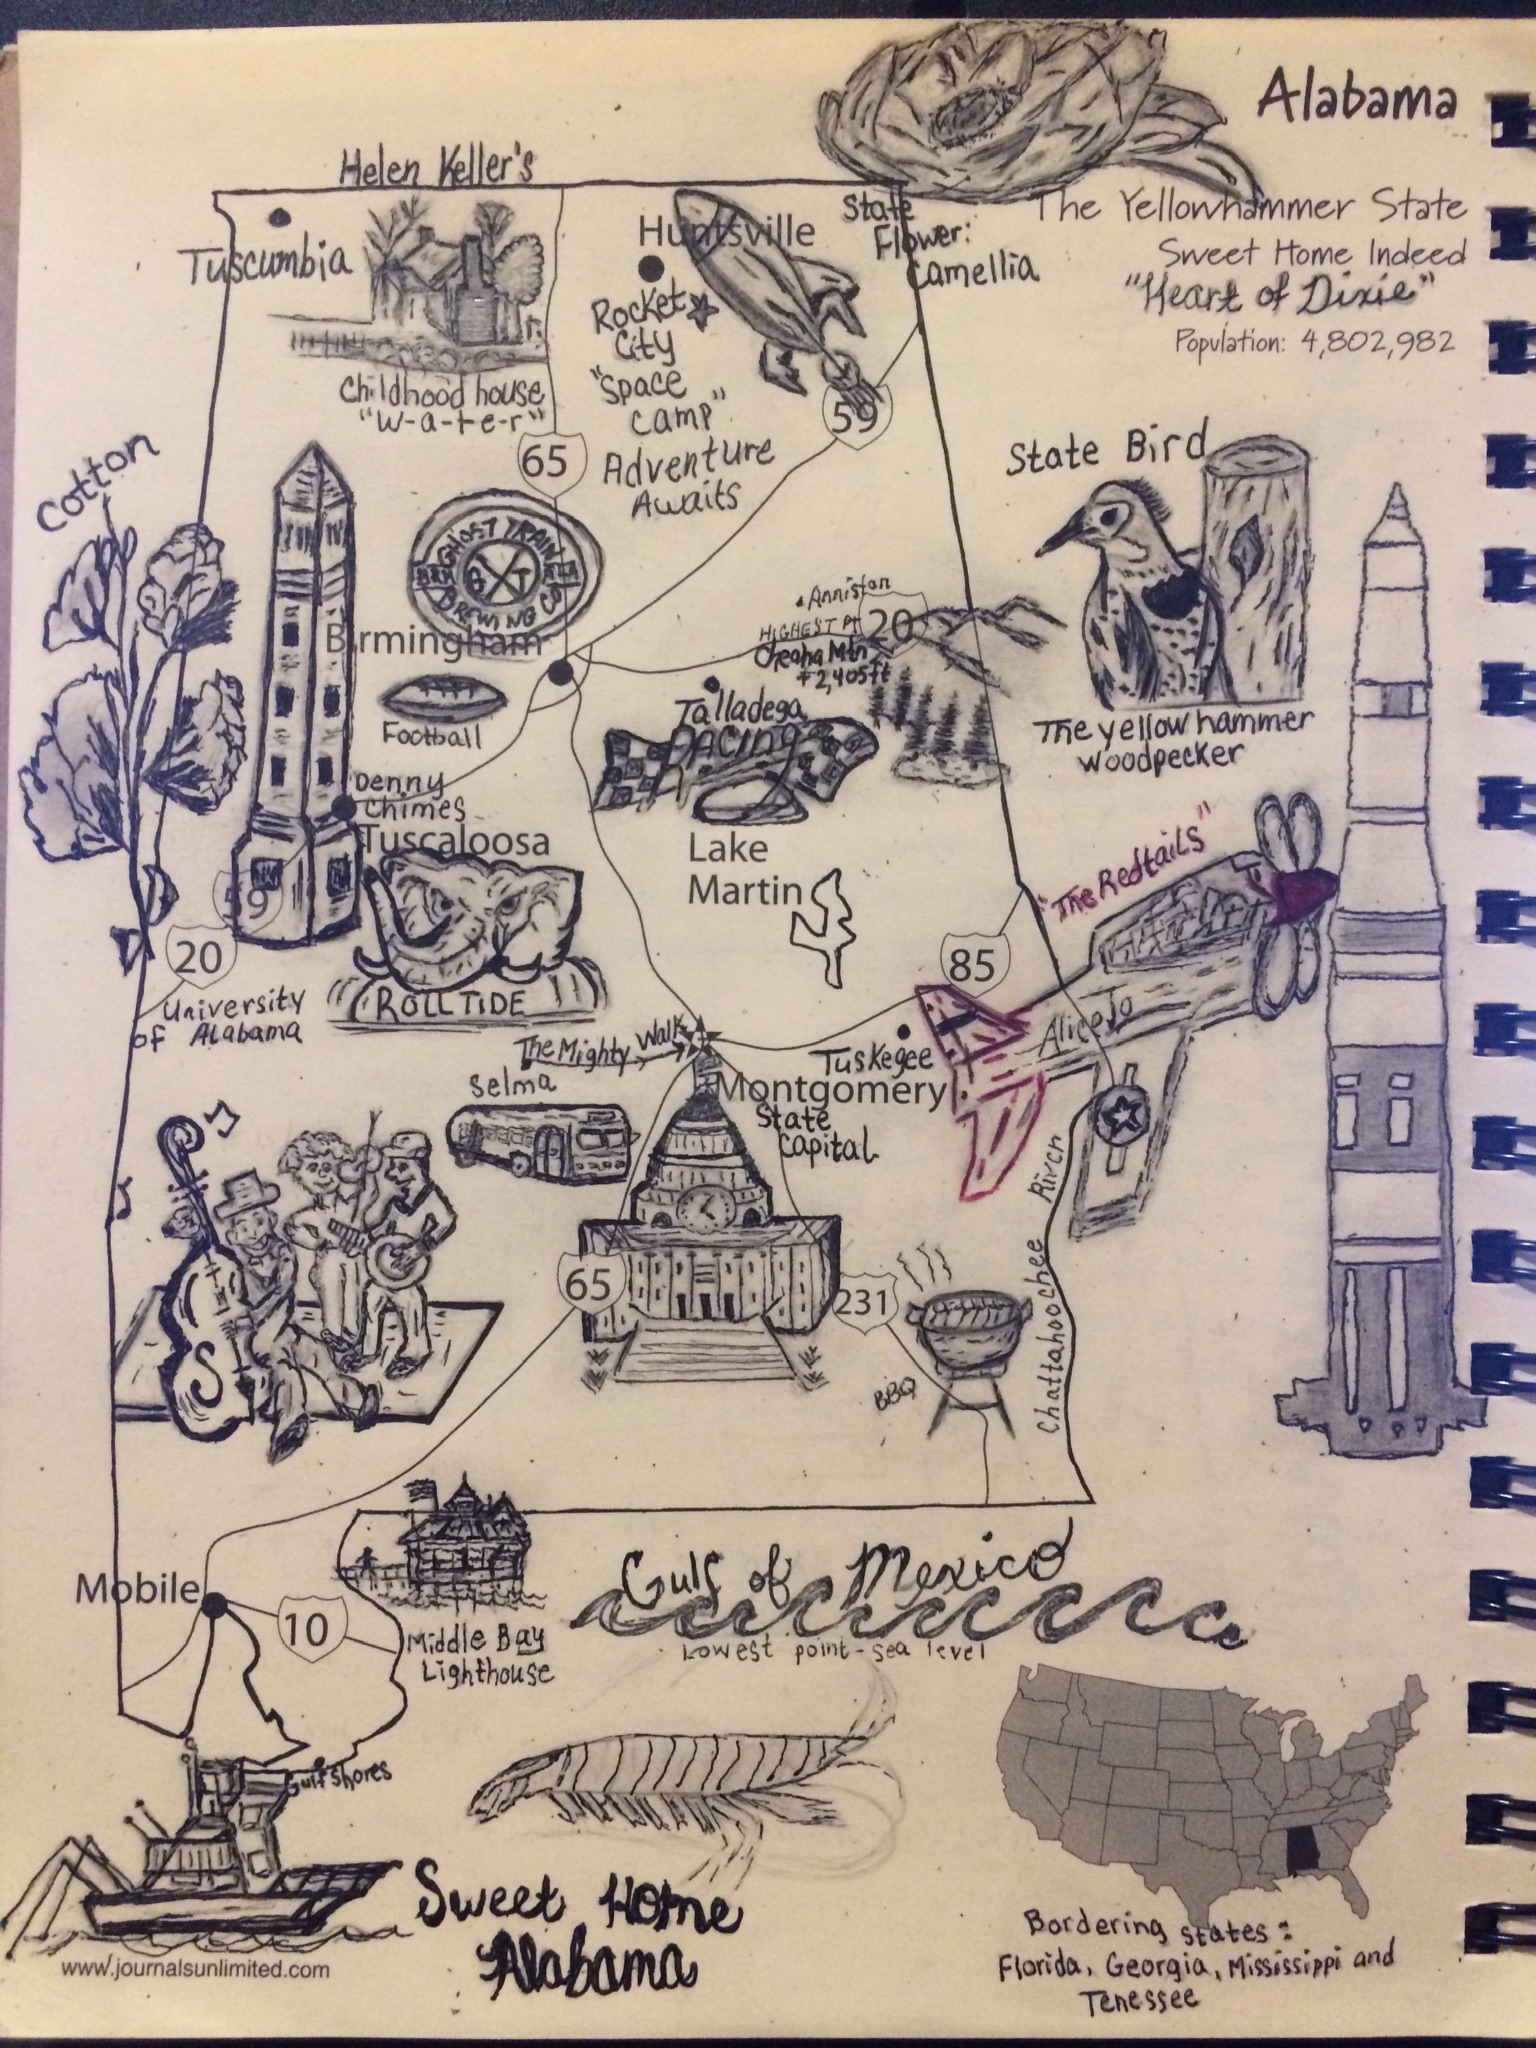 Alabama
The Yellowhammer State
Sweet Home Indeed
"Heart of Dixie"
Population: 4,802,982
Helen Keller's
Tuscumbia
Childhood house
"W-a-t-e-r"
Huntsville
Rocket
City
"Space
Camp"
Adventure
Awaits
State
Flower:
Camellia
65
59
Cotton
GHOST TRAIN
G T
BREWING CO
Birmingham
Football
Anniston
20
HIGHEST Pt
Cheaha Mtn
+2,405ft
State Bird
The yellowhammer
Woodpecker
Talladega
RACING
Denny
Chimes
Tuscaloosa
59
20
ROLL TIDE
University
of Alabama
Lake
Martin
85
"The Redtails"
Alice Jo
Tuskegee
The Mighty Walk
Selma
Montgomery
State
Capital
65
231
BBQ
Chattahoochee River
S
Mobile
10
Middle Bay
Lighthouse
Gulf of Mexico
Lowest point-sea level
Gulf Shores
Sweet Home
Alabama
Bordering states:
Florida, Georgia, Mississippi and
Tenessee
www.journalsunlimited.com